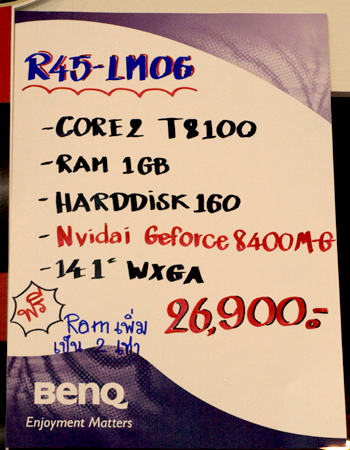 R45-LM06
-CORE2 T8100
-RAM 1GB
-HARDDISK 160
-Nvidai Geforce 8400M-G
-14.1" WXGA
26,900.-
ฟรี
Ram เพิ่ม
เป็น 2 เท่า
BenQ
Enjoyment Matters